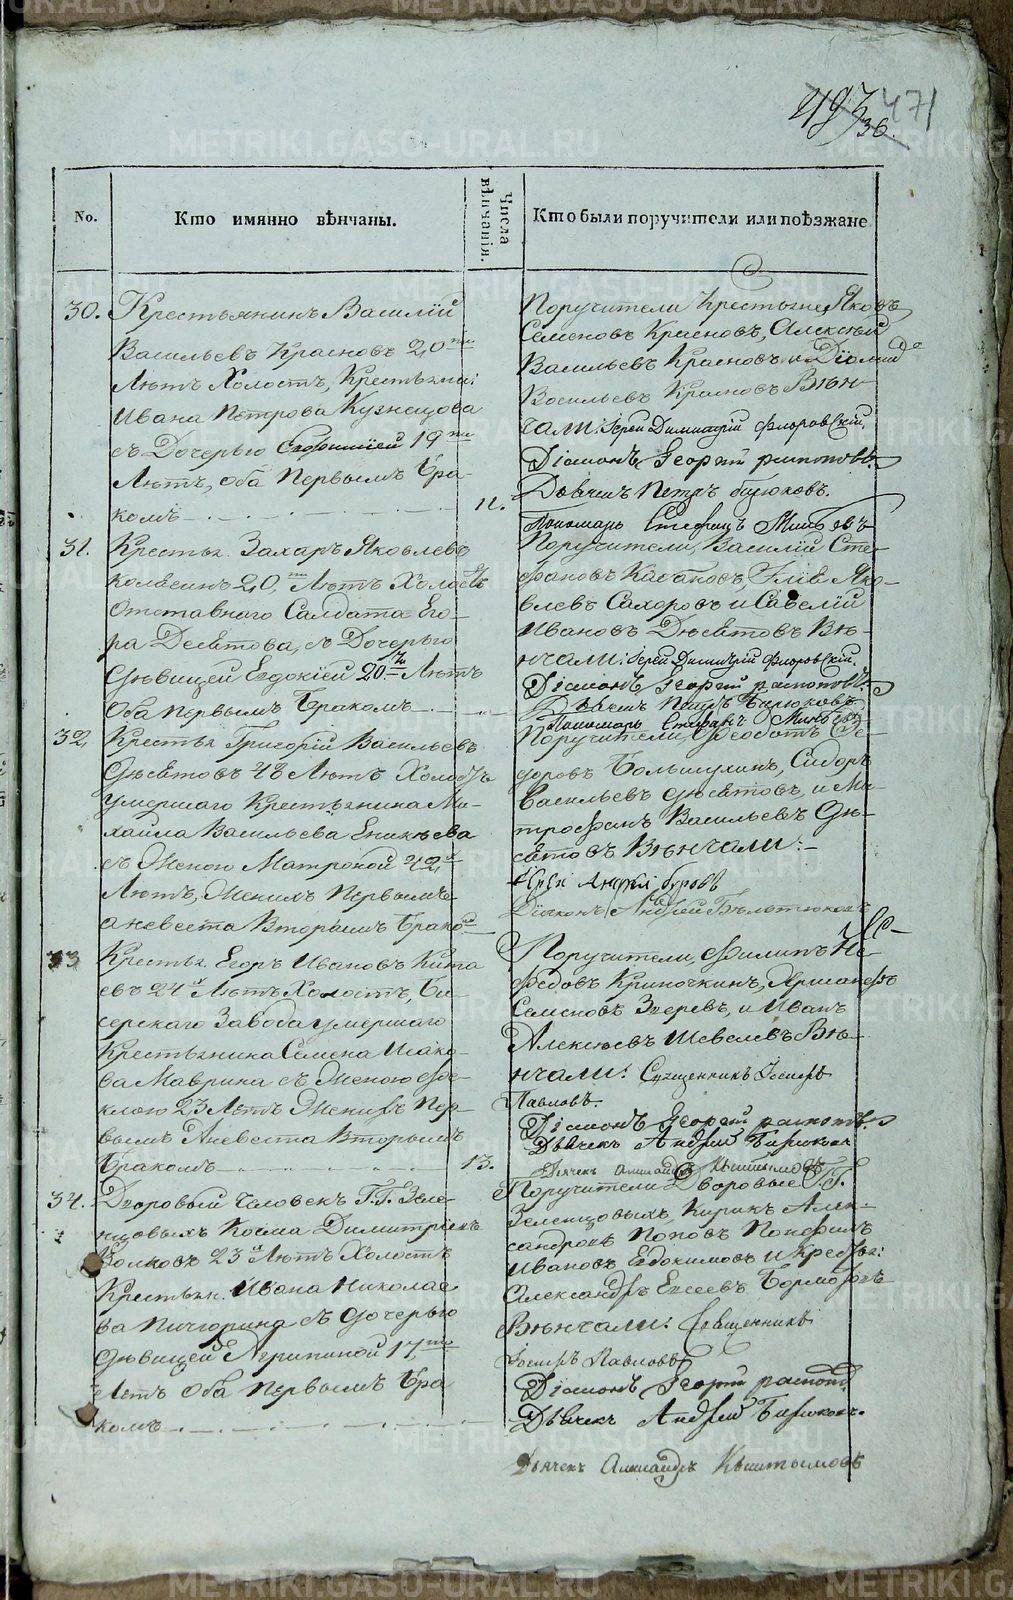 471
36.
No.
Кто имянно вѣнчаны.
Числа вѣнчанія.
Кто были поручители или поѣзжане
30. Крестьянинъ Василій
Васильевъ Красновъ 20ти
Лѣтъ Холостъ, Крестьяни:
Ивана Петрова Кузнецова
съ Дочерью 19ти
Лѣтъ, оба Первымъ Бра
комъ
12.
Поручители Крестьяне Яковъ
Семеновъ Красновъ, Алексѣй
Васильевъ Красновъ и Діомидъ
Васильевъ Красновъ Вѣн-
чали: Іерей Димитрій Флоровскій,
Діаконъ Георгій распоповъ.
Дьячекъ Петръ Бирюковъ.
Пономарь Стефанъ
31. Крестья. Захаръ Яковлевъ
20ти Лѣтъ Холостъ
Отставнаго Салдата Его-
ра Десятова, съ Дочерью
Дѣвицей Евдокіей 20ти Лѣтъ
Оба Первымъ Бракомъ
Поручители, Василій Сте-
фановъ Кабановъ, Яко-
влевъ Сахоровъ и Савелій
Ивановъ Вѣ-
нчали: Іерей Димитрій Флоровскій.
Діаконъ Георгій распоповъ.
Дьячекъ Петръ Бирюковъ
Пономарь Стефанъ
32. Крестья Григорій Васильевъ
Лѣтъ Холостъ
умершаго Крестьянина Ми-
хайла Васильева Еникѣева
съ Женою Матроной 42х
Лѣтъ, Женихъ Первымъ
а невеста Вторымъ Брако
Поручители, Феодотъ Фе-
доровъ Сидоръ
Васильевъ и Ми-
трофанъ Васильевъ
Вѣнчали:-
Іерей Андрей
Діаконъ Андрей
33 Крестья. Егоръ Ивановъ Кита
евъ 24х Лѣтъ Холостъ, Би-
серскаго Завода умершаго
Крестьянина Семена Исако-
ва Маврина съ Женою Фе-
клою 23 Лѣтъ Женихъ Пер-
вымъ Аневеста Вторымъ
Бракомъ
13.
Поручители, Филипъ Не-
федовъ Криночкинъ,
Семеновъ Зверевъ, и Иванъ
Алексѣевъ Шевелевъ Вѣ-
нчали: Священникъ Іосифъ
Павловъ.
Діаконъ Георгій распоповъ
Дьячекъ Андрей Бирюковъ
Дьячекъ Александръ Кыштымовъ
34. Дворовый Человекъ Г. Г. Зеле-
нцовыхъ Косма Димитріевъ
Волковъ 23х Лѣтъ Холостъ
Крестьян. Ивана Николае
ва Пичюрина съ Дочерью
Дѣвицей Агрипиной 17ти
Лѣтъ Оба Первымъ Бра
комъ
Поручители Дворовые Г. Г.
Зеленцовыхъ, Кирикъ Алек-
сандровъ Поповъ
Ивановъ Евдокимовъ и
Александръ Елисеевъ
Вѣнчали: Священникъ
Іосифъ Павловъ
Діаконъ Георгій распопо
Дьячекъ Андрей Бирюковъ.
Дьячекъ Александръ Кыштымовъ
METRIKI.GASO-URAL.RU